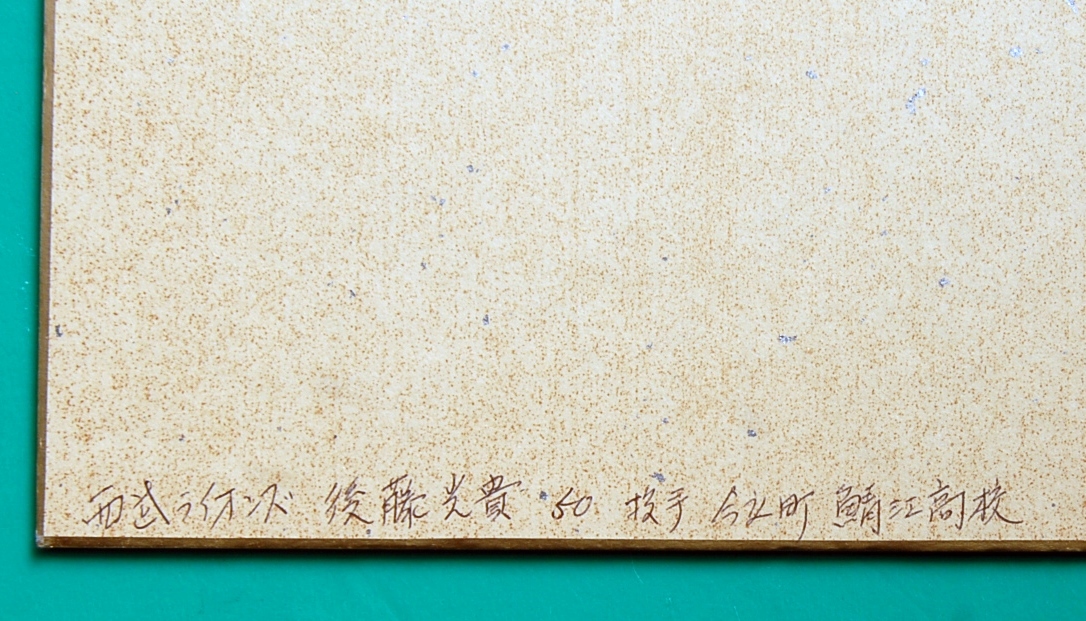 西武ライオンズ 後藤光貴 50 投手 今立町 鯖江高校